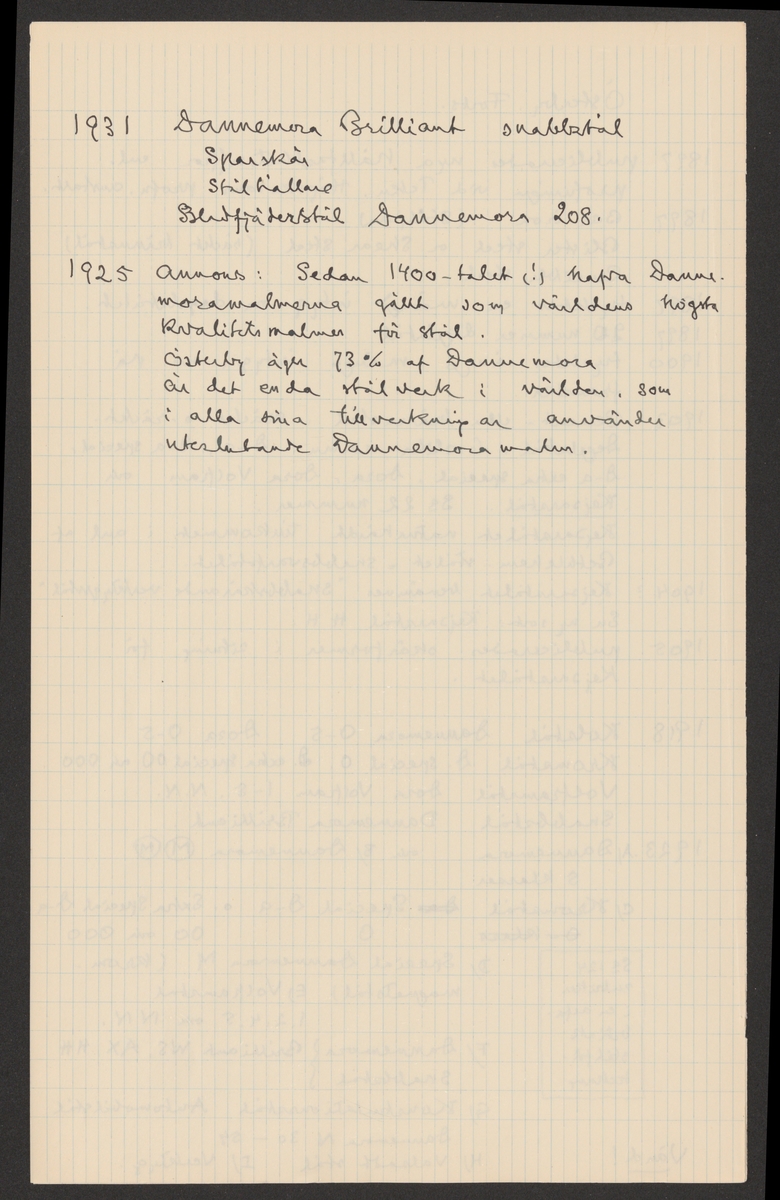 1931 Dannemora Brilliant snabbstål
Sparskär
Stålhållare
Bladfjäderstål Dannemora 208.
1925 Annons: Sedan 1400-talet (!) hafva Danne-
moramalmerna gällt som världens högsta
kvalitetsmalmer för stål.
Österby äger 73% af Dannemora
är det enda stålverk i världen, som
i alla sina tillverkningar använder
uteslutande Dannemora malm.